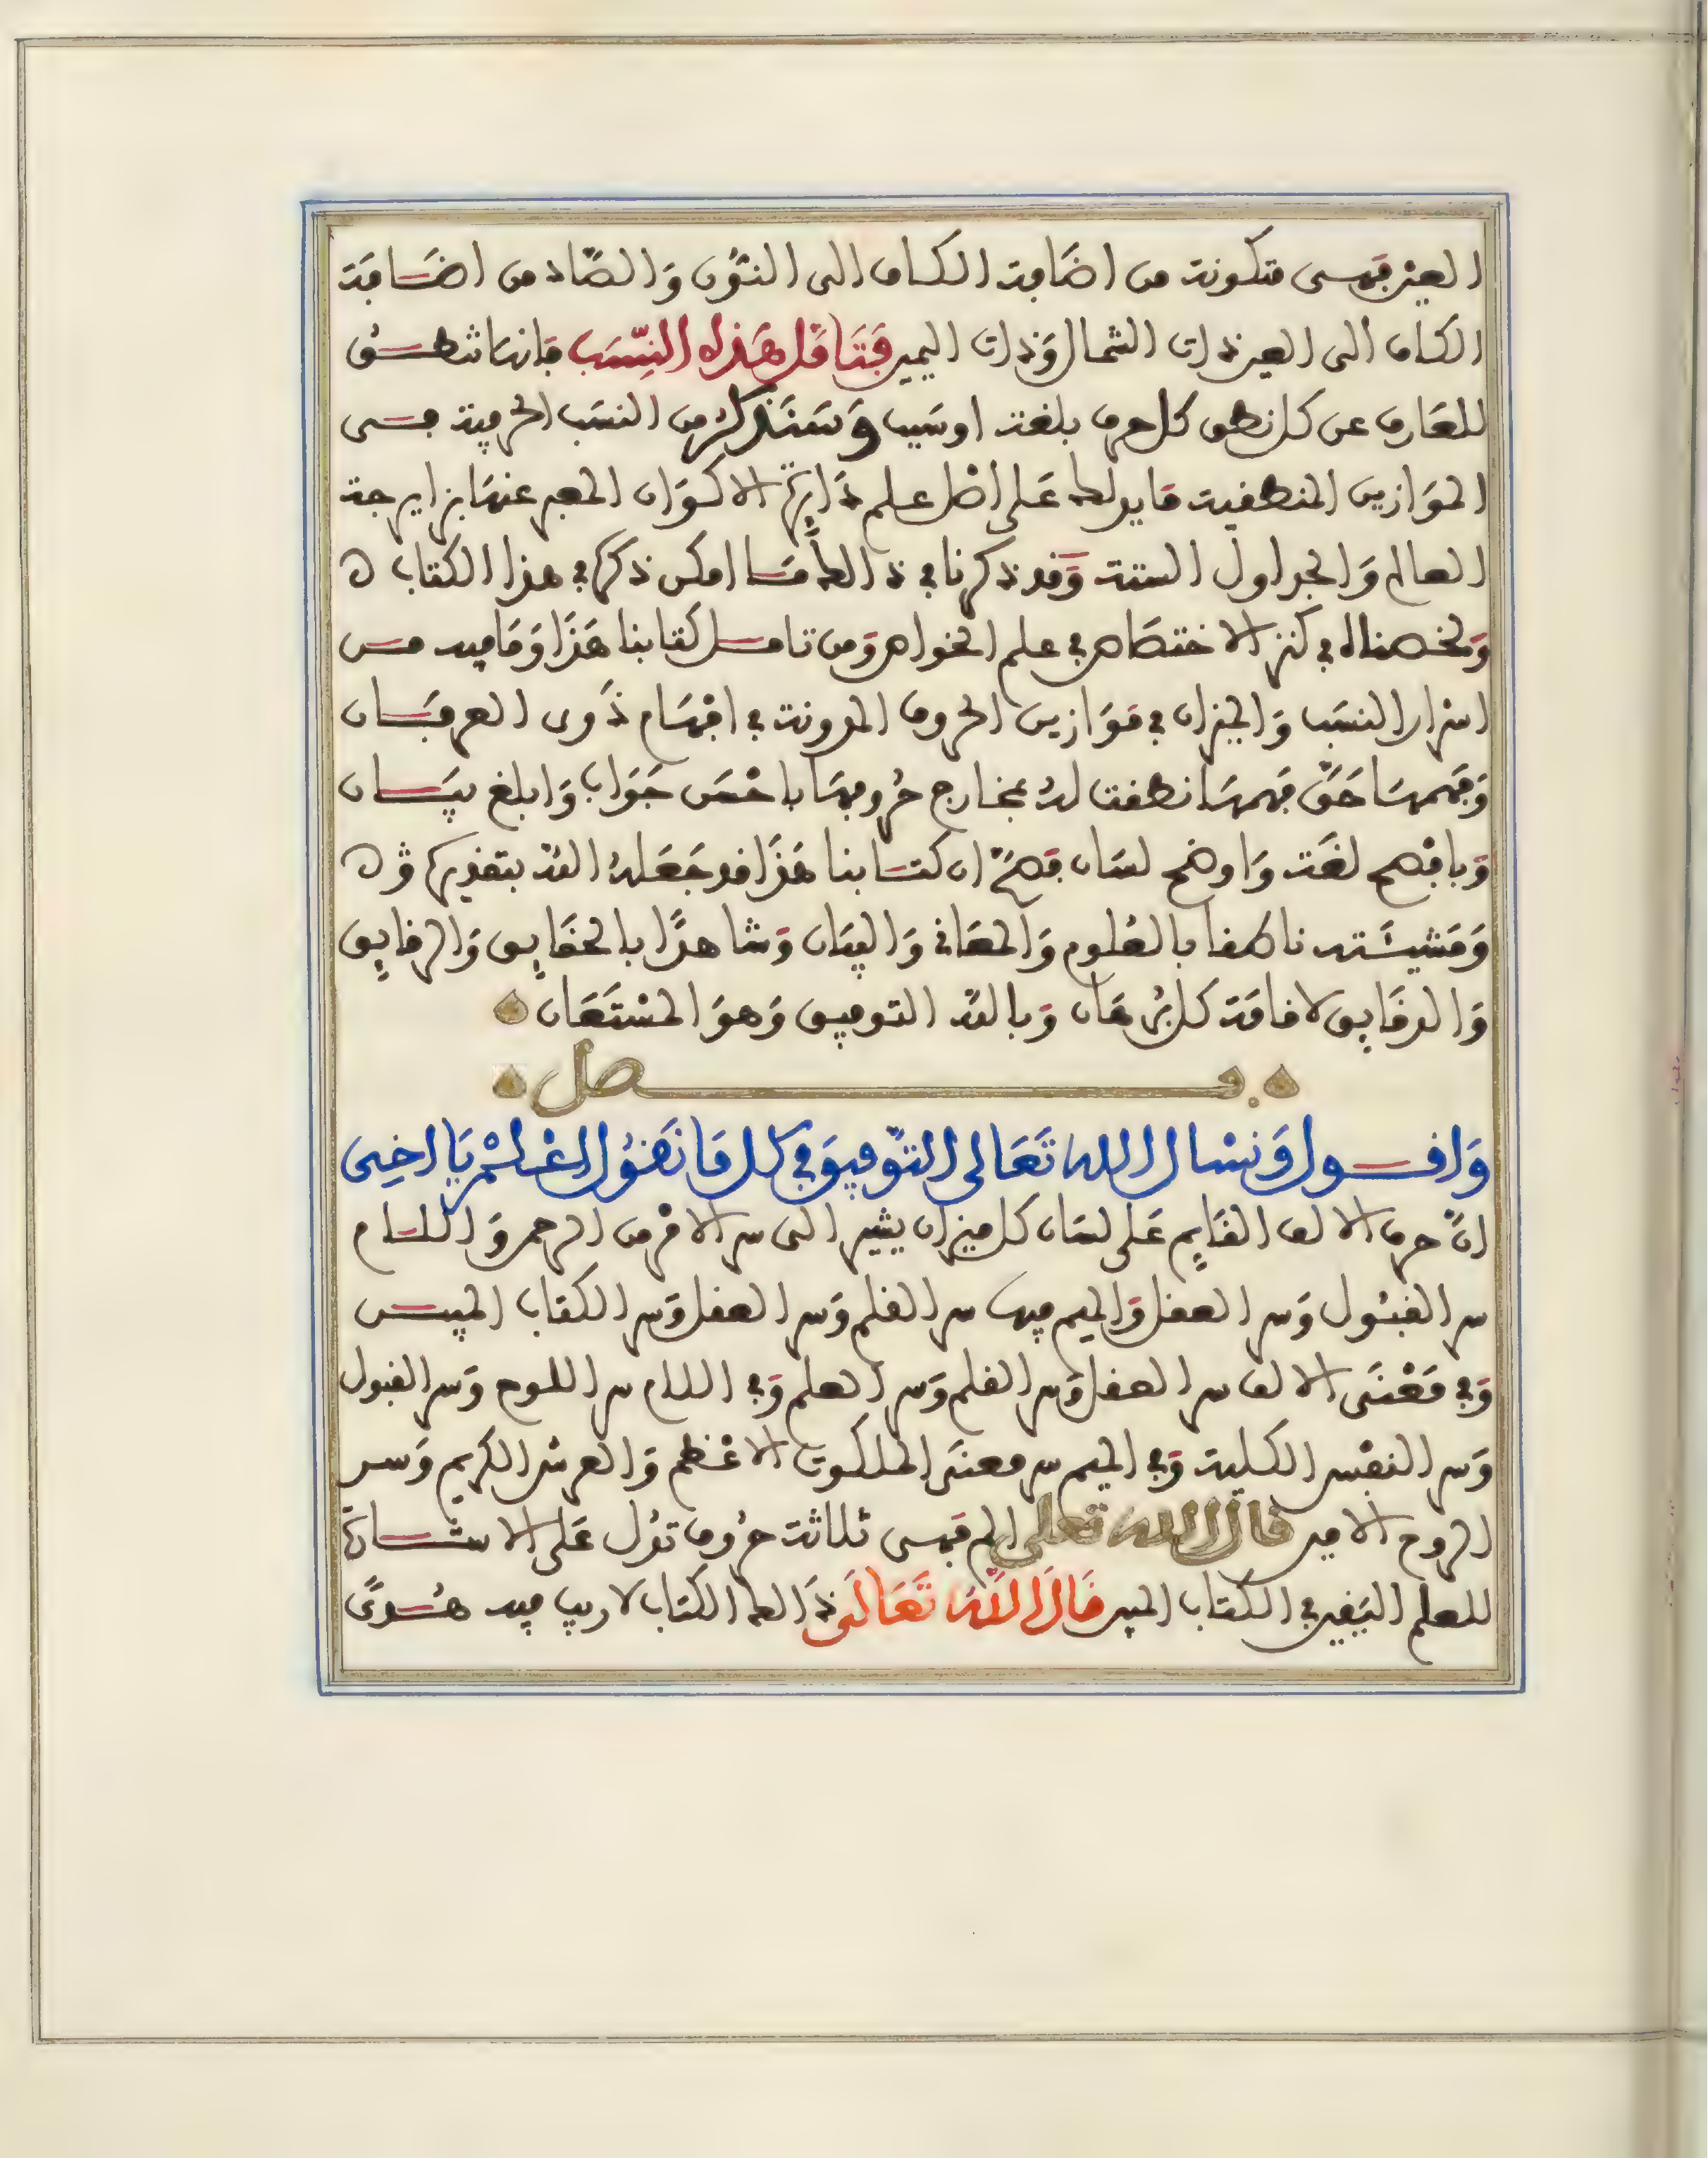 العين فهي متكونة من اضَافة الكاف الى النُّون وَالصَّاد من اضَافَة
الكاف الى العين ذات الشمال وَذات اليمين فَتَامَّل هَذه النِّسَب فَانهَا تنطق
للعَارف عن كل نطق كل حرف بلغة اوسَيب وَسَنَذكر من النسَب الحرفية في
الموَازين المنطقية مَا يدلك عَلى اصْل علم دَايرَة الاكوَان المعبر عنهَا بزايرجة
العالم وَالجداول الستة وَقد ذكرنا في ذالك مَا امكن ذكره في هذا الكتاب ه
وَلخصناه في كنز الاختصَاص في علم الخواص وَمن تامل كتابنا هَذَا وَمَا فيه من
اسْرار النسَب وَالميزان في مَوَازين الحروف المدونة في افْهَام ذَوى العرفَان
وَفهمهَا حَقَّ فهمهَا نطقت لهُ بمخارج حُروفهَا باحْسَن جَوَاب وَابلغ بيَان
وَبافْصح لغَة وَاوضح لسَان فَصَحَّ ان كتابنا هَذَا قد جَعَلهُ الله بتقديره
وَمَشيئَته ناطقا بالعُلوم وَالمعَاني وَالبيَان وَشاهدًا بالحقَايق وَالرقايق
وَالدقَايق لاقامَة كل بُرهَان وَبالله التوفيق وَهوَ المسْتَعَان
فصل
وَاقول وَنسْال الله تَعَالى التَّوفيق في كل مَا نَقُول اعْلمْ يَا اخِى
انَّ حرف الالف القَايم عَلى لسَان كل ميزان يشير الى سر الامْر من الرحمن وَاللام
سر القبُول وَسر العقل وَالميم فيها سر القلم وَسر العقل وَسر الكتاب المبين
وَفي مَعْنَى الالف سر العقل وَسر القلم وَسر العلم وَفي اللام سر اللوح وَسر القبول
وَسر النفْس الكلية وَفي الميم سر معنَى الملكوت الاعْظم وَالعرش الكريم وَسر
الروح الامين قال الله تعلى الم فهى ثلاثة حرُوف تدُل عَلى الاشَارَة
للعلم اليَقين في الكتاب المبين قَالَ اللَّهُ تَعَالَى ذَالك الكتَاب لا ريب فيه هُدًى